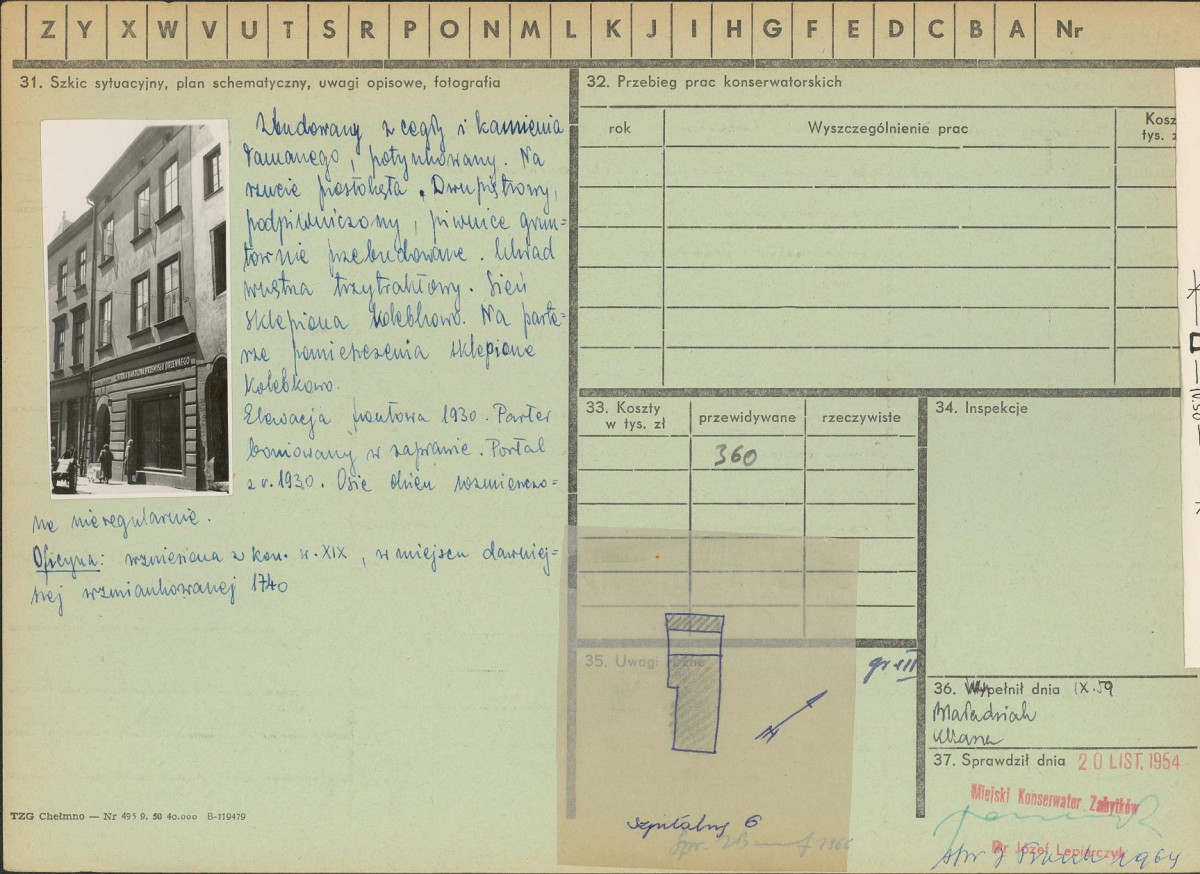 Z Y X W V U T S R P O N M L K J I H G F E D C B A Nr
31. Szkic sytuacyjny, plan schematyczny, uwagi opisowe, fotografia
Zbudowany z cegły i kamienia
łamanego, potynkowany. Na
rzucie prostokąta. Dwupiętrowy,
podpiwniczony, piwnice grun=
townie przebudowane. Układ
wnętrza trzytraktowy. Sień
sklepiona kolebkowo. Na parte=
rze pomieszczenia sklepione
kolebkowo.
Elewacja frontowa 1930. Parter
boniowany w zaprawie. Portal
z r. 1930. Osie okien rozmieszczo=
ne nieregularnie.
Oficyna: wzniesiona z kon. w. XIX, w miejscu dawniej=
szej wzmiankowanej 1740
TZG Chełmno — Nr 495 9. 50 40.000 B-119479
32. Przebieg prac konserwatorskich
rok Wyszczególnienie prac Kosz
tys. z
33. Koszty w tys. zł przewidywane rzeczywiste
360
34. Inspekcje
35. Uwagi
gr III
szpitalny 6
1966
36. Wypełnił dnia IX.59
37. Sprawdził dnia 20 LIST. 1954
Miejski Konserwator Zabytków
Dr Józef Lepiarczyk
1964